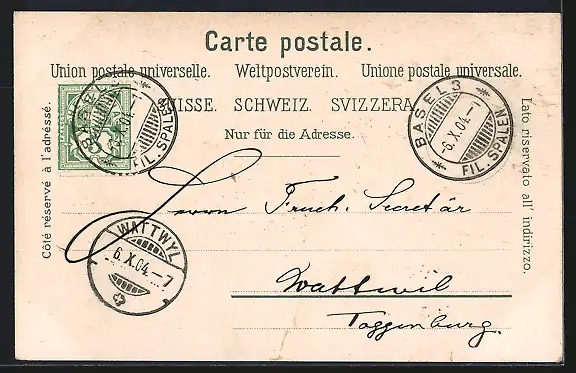 Carte postale.
Union postale universelle. Weltpostverein. Unione postale universale.
SUISSE. SCHWEIZ. SVIZZERA.
Nur für die Adresse.
Côté réservé à l'adrésse.
Lato riservato all' indirizzo.
BASEL 3
-6.X.04.-7
FIL. SPALEN
BASEL
FIL. SPALEN
WATTWYL
6.X.04.-7
Herrn Fruch. Secretär
Wattwil
Toggenburg.